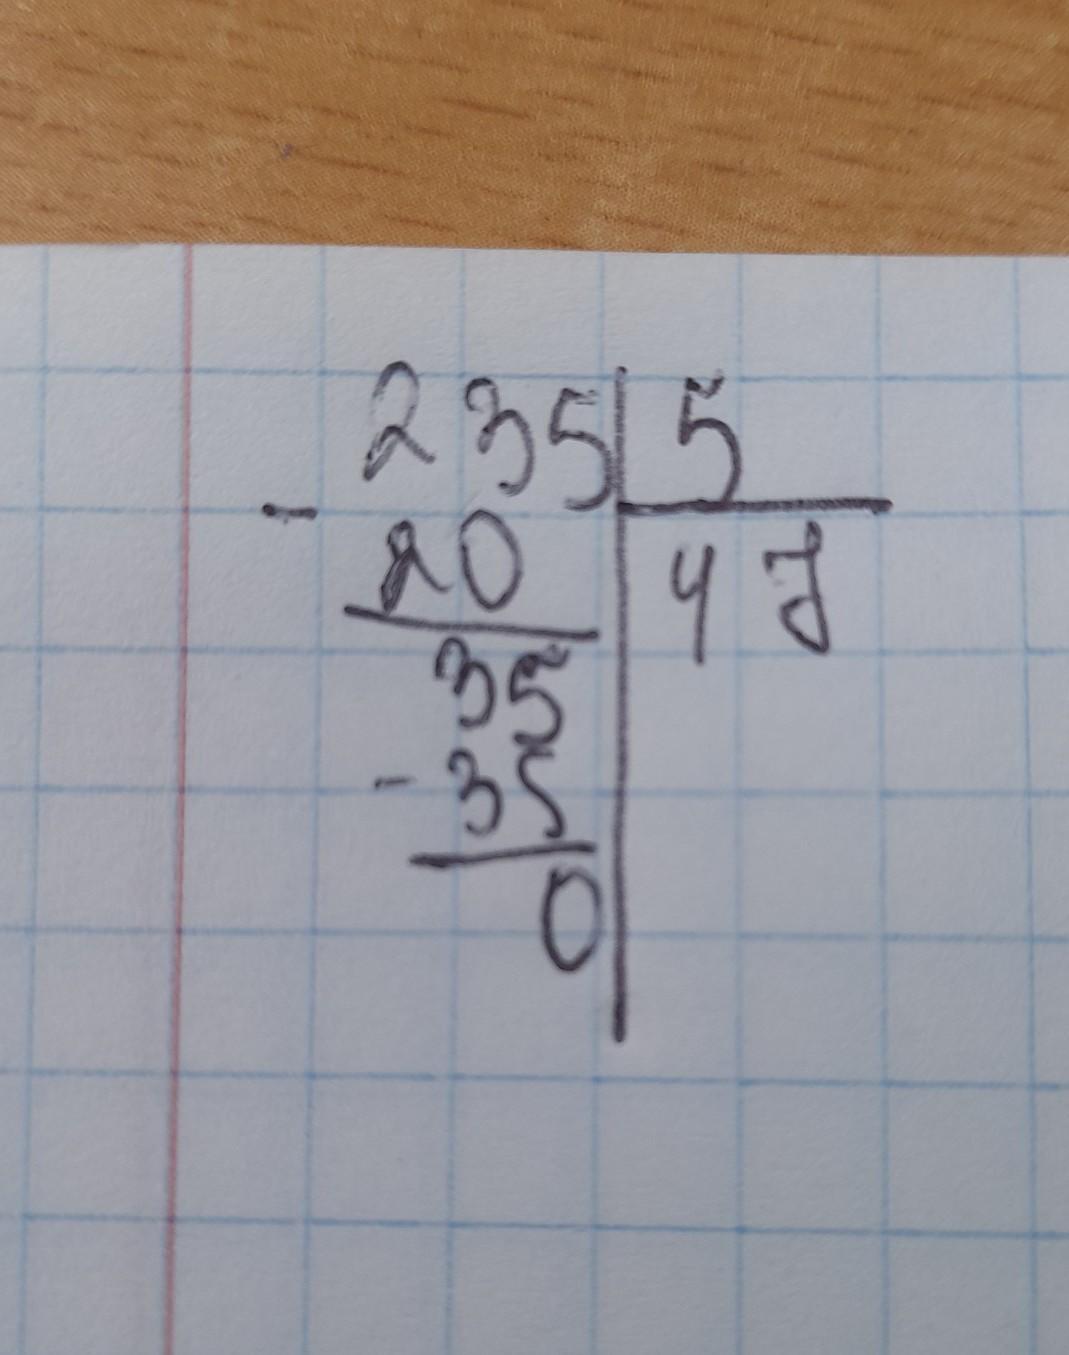 235 5
- 20 47
35
- 35
0